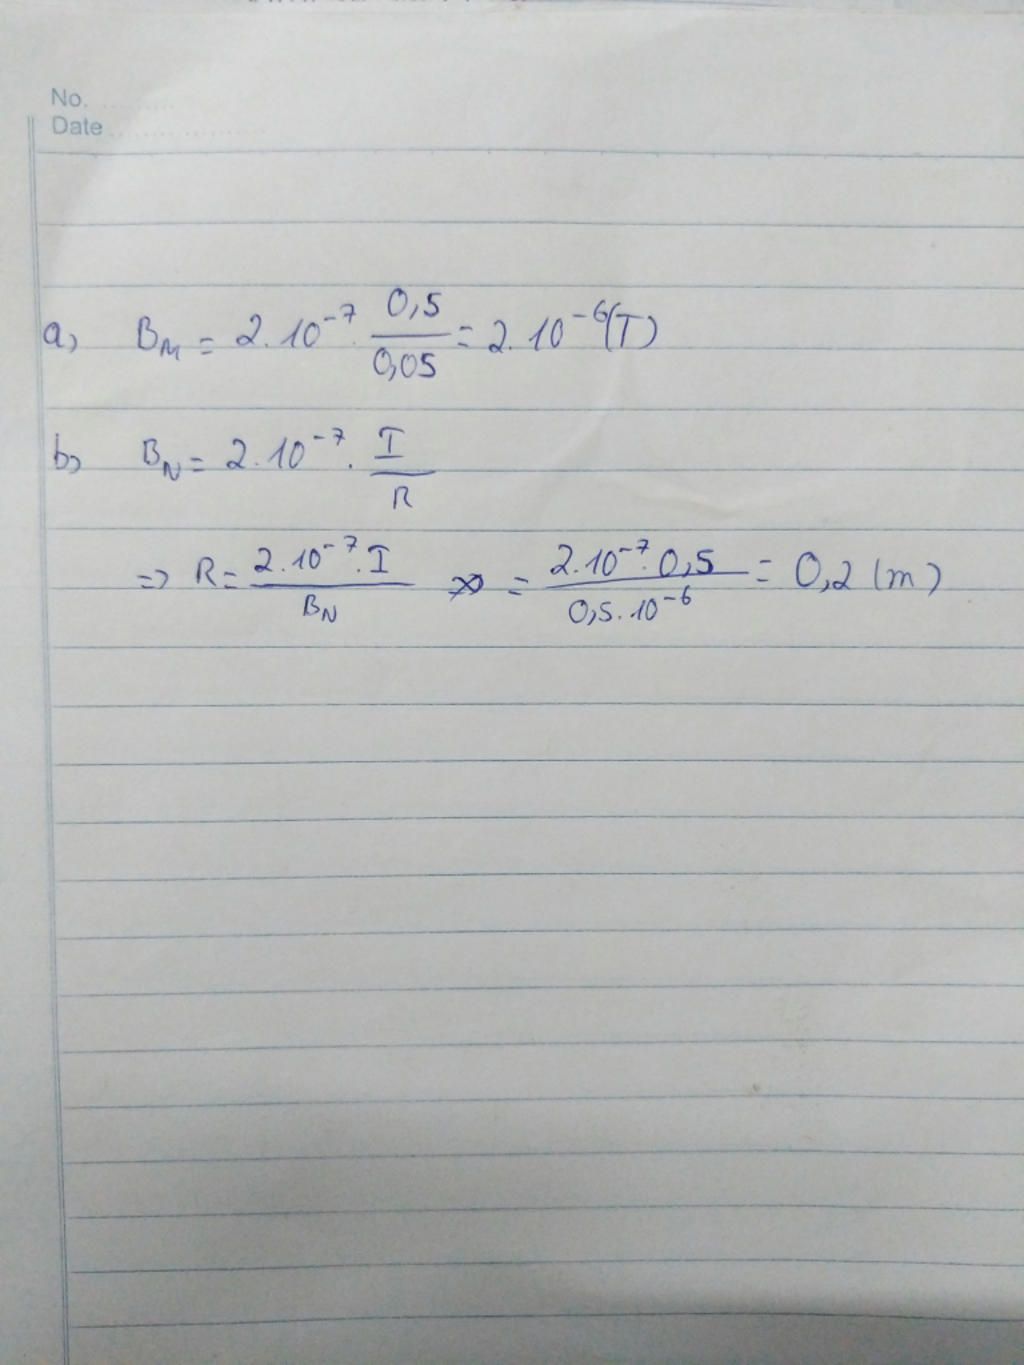 No. ..........
Date ....................
a, B_M = 2.10^-7 . 0,5/0,05 = 2.10^-6 (T)
b, B_N = 2.10^-7 . I/R
=> R = 2.10^-7.I/B_N = 2.10^-7.0,5/0,5.10^-6 = 0,2 (m)